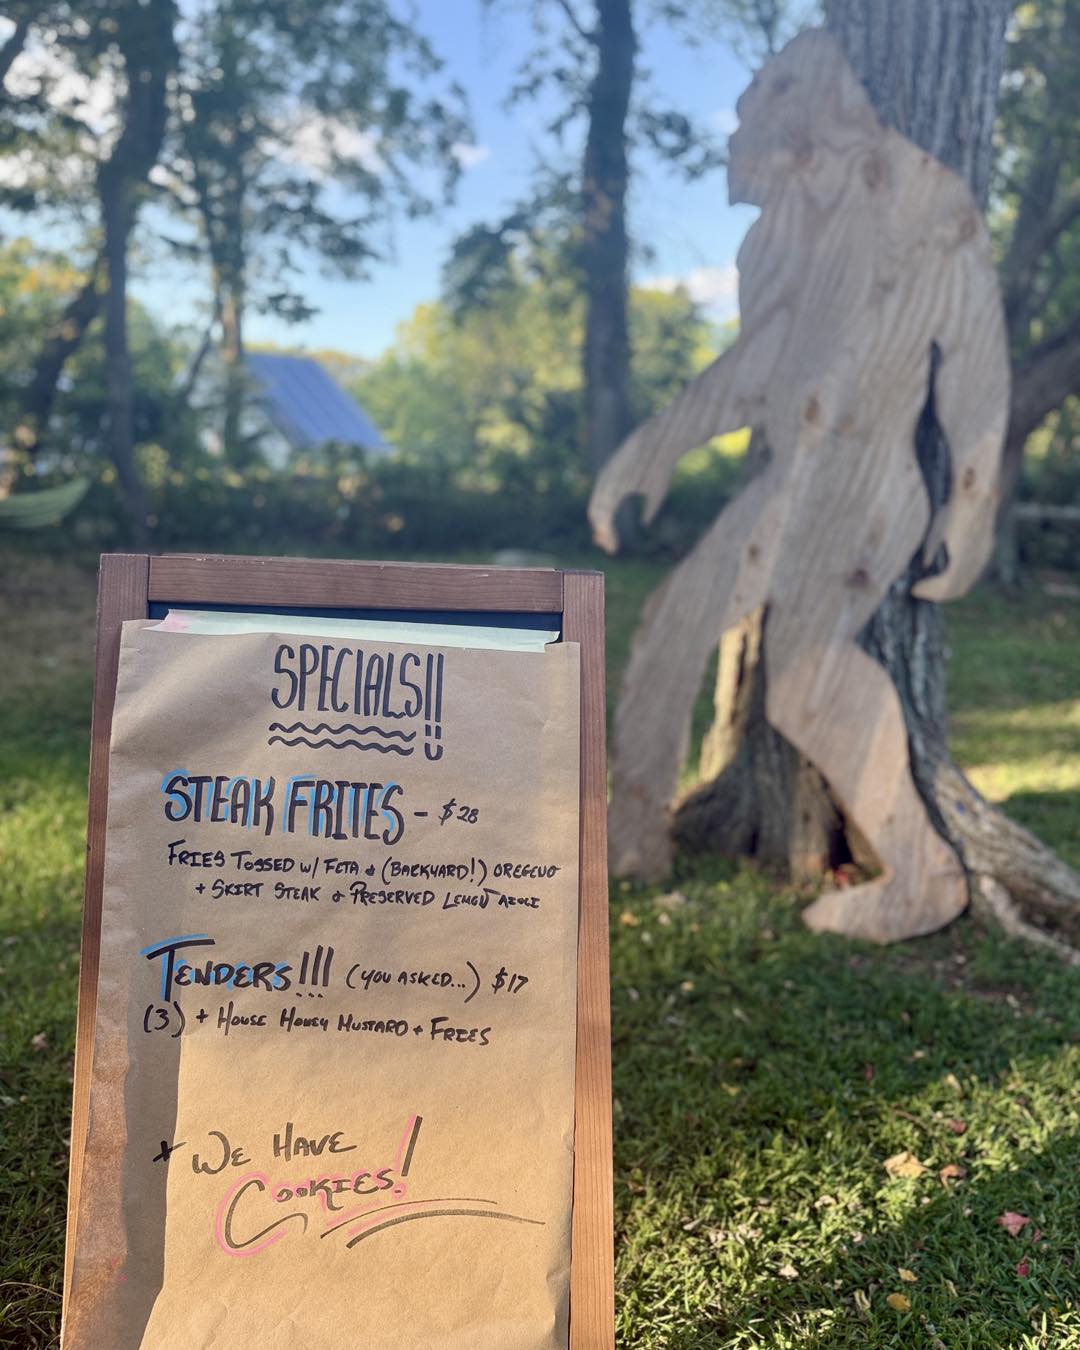 SPECIALS!!
STEAK FRITES - $28
FRIES TOSSED W/ FETA & (BACKYARD!) OREGENO
+ SKIRT STEAK & PRESERVED LEMON AIOLI
TENDERS!!! (YOU ASKED...) $17
(3) + HOUSE HONEY MUSTARD + FRIES
* WE HAVE
COOKIES!